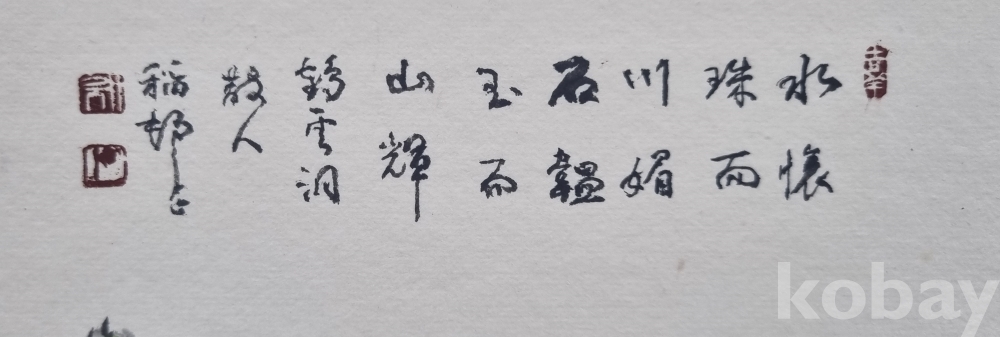 水懷
珠而
川媚
石韞
玉而
山輝
鶴雲洞
散人
稻邨
kobay